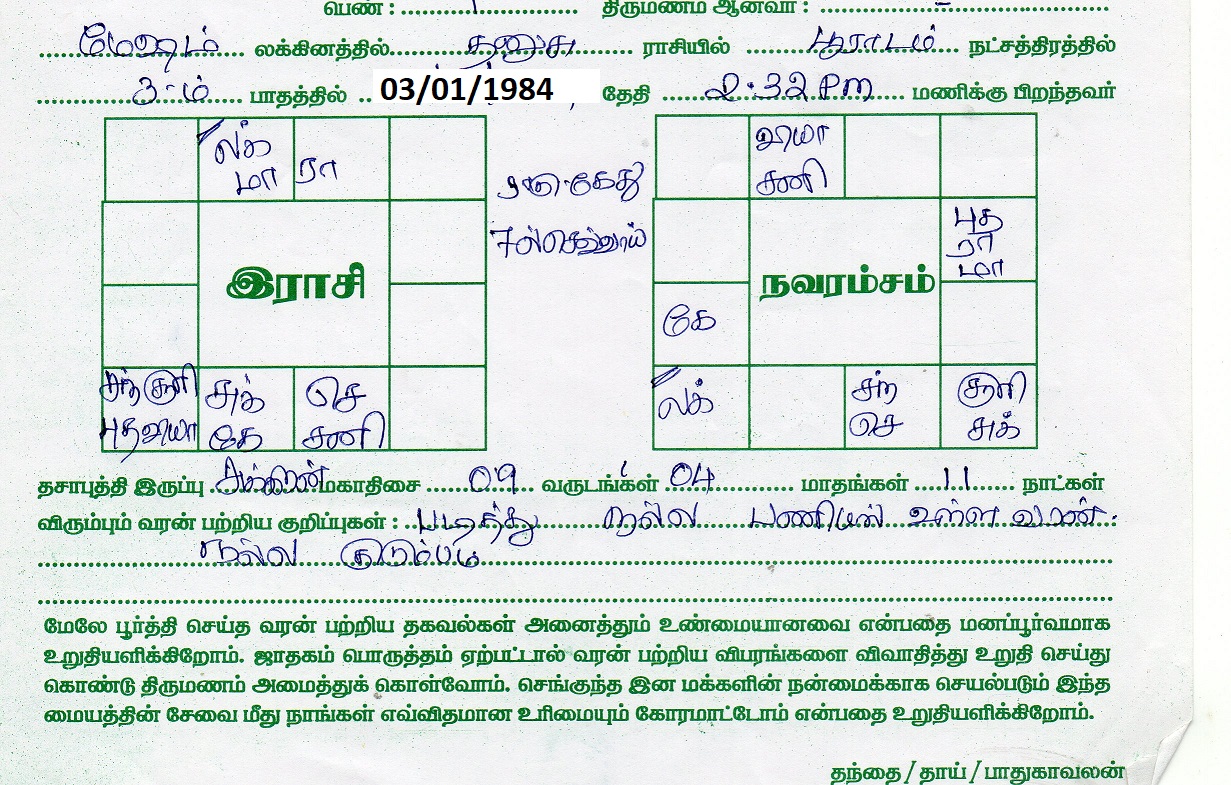 பெண் : திருமணம் ஆனவர் :
மேஷம் லக்கினத்தில் தனுசு ராசியில் பூராடம் நட்சத்திரத்தில்
3-ம் பாதத்தில் 03/01/1984 தேதி 2.32 PM மணிக்கு பிறந்தவர்
லக் மா
ரா
இராசி
சந் சூரி
புத வியா
சுக் கே
செ சனி
8ல் கேது
7ல் செவ்வாய்
வியா சனி
புத ரா மா
நவரம்சம்
கே
லக்
சந் செ
சூரி சுக்
தசாபுத்தி இருப்பு சுக்கிரன் மகாதிசை 09 வருடங்கள் 04 மாதங்கள் 11 நாட்கள்
விரும்பும் வரன் பற்றிய குறிப்புகள் : படித்து நல்ல பணியில் உள்ள வரன்.
நல்ல குடும்பம்
மேலே பூர்த்தி செய்த வரன் பற்றிய தகவல்கள் அனைத்தும் உண்மையானவை என்பதை மனப்பூர்வமாக
உறுதியளிக்கிறோம். ஜாதகம் பொருத்தம் ஏற்பட்டால் வரன் பற்றிய விபரங்களை விவாதித்து உறுதி செய்து
கொண்டு திருமணம் அமைத்துக் கொள்வோம். செங்குந்த இன மக்களின் நன்மைக்காக செயல்படும் இந்த
மையத்தின் சேவை மீது நாங்கள் எவ்விதமான உரிமையும் கோரமாட்டோம் என்பதை உறுதியளிக்கிறோம்.
தந்தை / தாய் / பாதுகாவலன்